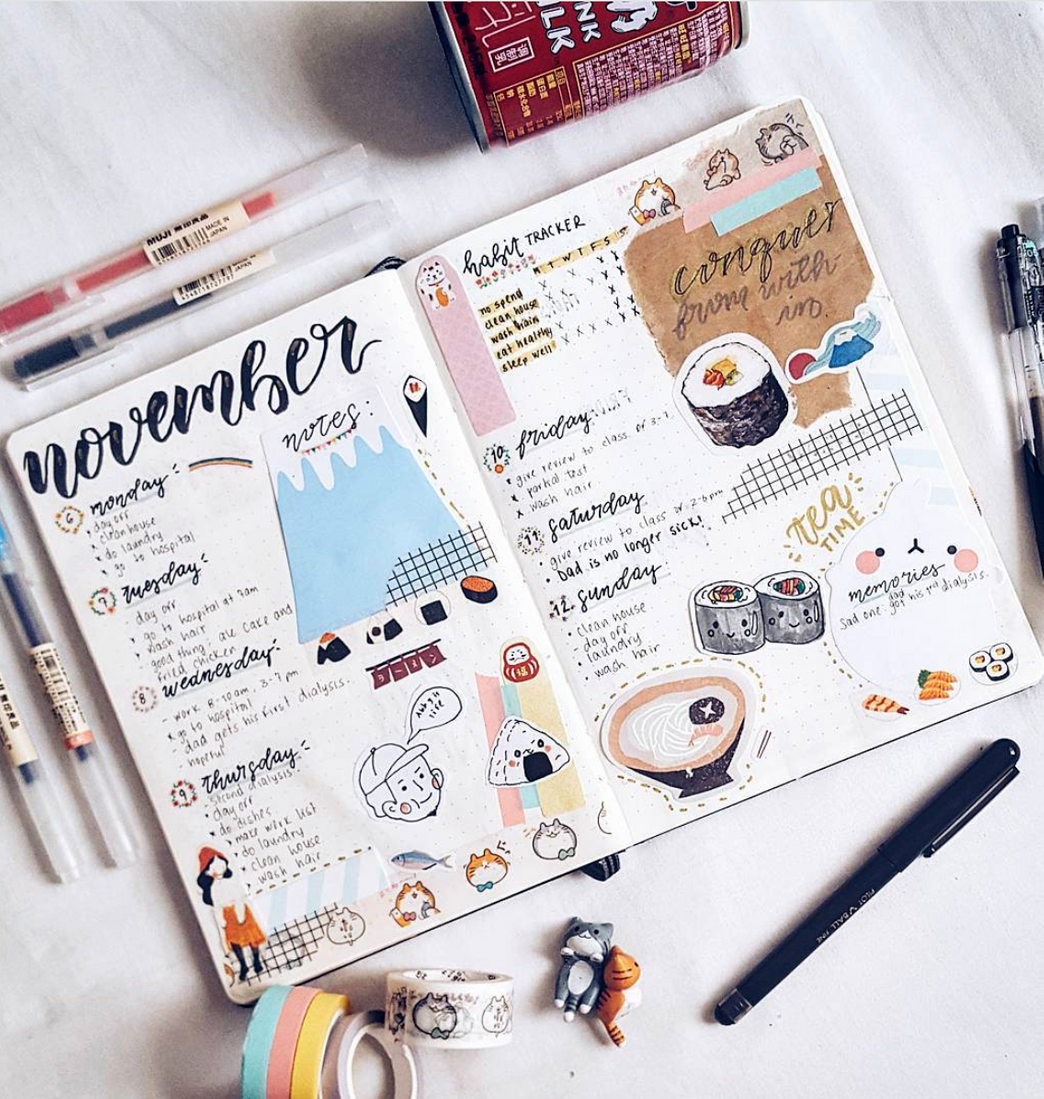 NK
LK
调制乳
MUJI 無印良品
MADE IN
JAPAN
november
notes:
6 monday
day off
clean house
do laundry
go to hospital
7 tuesday
day off
go to hospital at 9am
wash hair
good thing: ate cake and
fried chicken
8 wednesday
work 8-10am, 3-7pm
go to hospital
dad gets his first dialysis.
hopeful
9 thursday
second dialysis.
day off
do dishes
make work list
do laundry
clean house
wash hair
ラーメン
福
habit TRACKER
M T W T F S S
no spend
clean house
wash hair
eat healthy
sleep well
conquer
from with-
in.
10 friday
give review to class
partial test
wash hair
11 saturday
give review to class 2-6pm
Dad is no longer sick!
12. sunday
clean house
day off
laundry
wash hair
tea
TIME
memories
dad
sad one: got his 1st dialysis.
PILOT V BALL